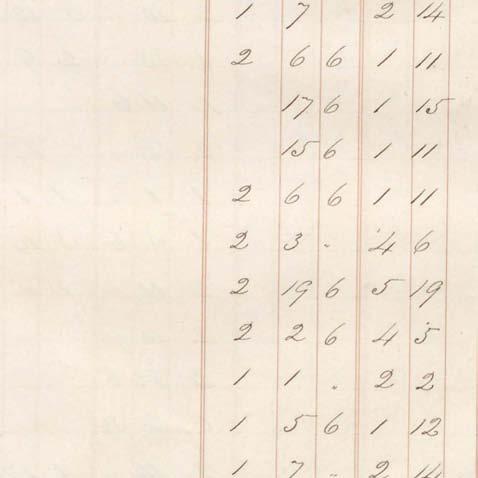 1 7 2 14
2 6 6 1 11
17 6 1 15
15 6 1 11
2 6 6 1 11
2 3 . 4 6
2 19 6 5 19
2 2 6 4 5
1 1 . 2 2
1 5 6 1 12
1 7 . 2 14